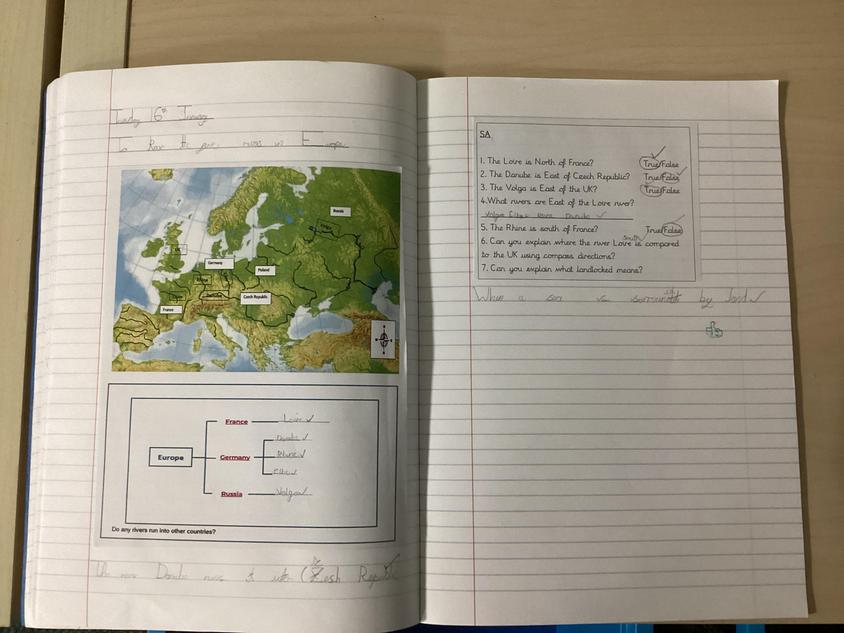 Tuesday 16th January
To know the rivers in Europe
Russia
Volga
UK
Germany
Poland
Rhine
Czech Republic
Loire
Danube
France
Europe
France
Loire
Danube
Germany
Rhine
Elbe
Russia
Volga
Do any rivers run into other countries?
Danube runs Republic
SA
1. The Loire is North of France? True/False
2. The Danube is East of Czech Republic? True/False
3. The Volga is East of the UK? True/False
4.What rivers are East of the Loire river?
Volga Elbe Rhine Danube
5. The Rhine is south of France? True/False
South
6. Can you explain where the river Loire is compared
to the UK using compass directions?
7. Can you explain what landlocked means?
When a is by land